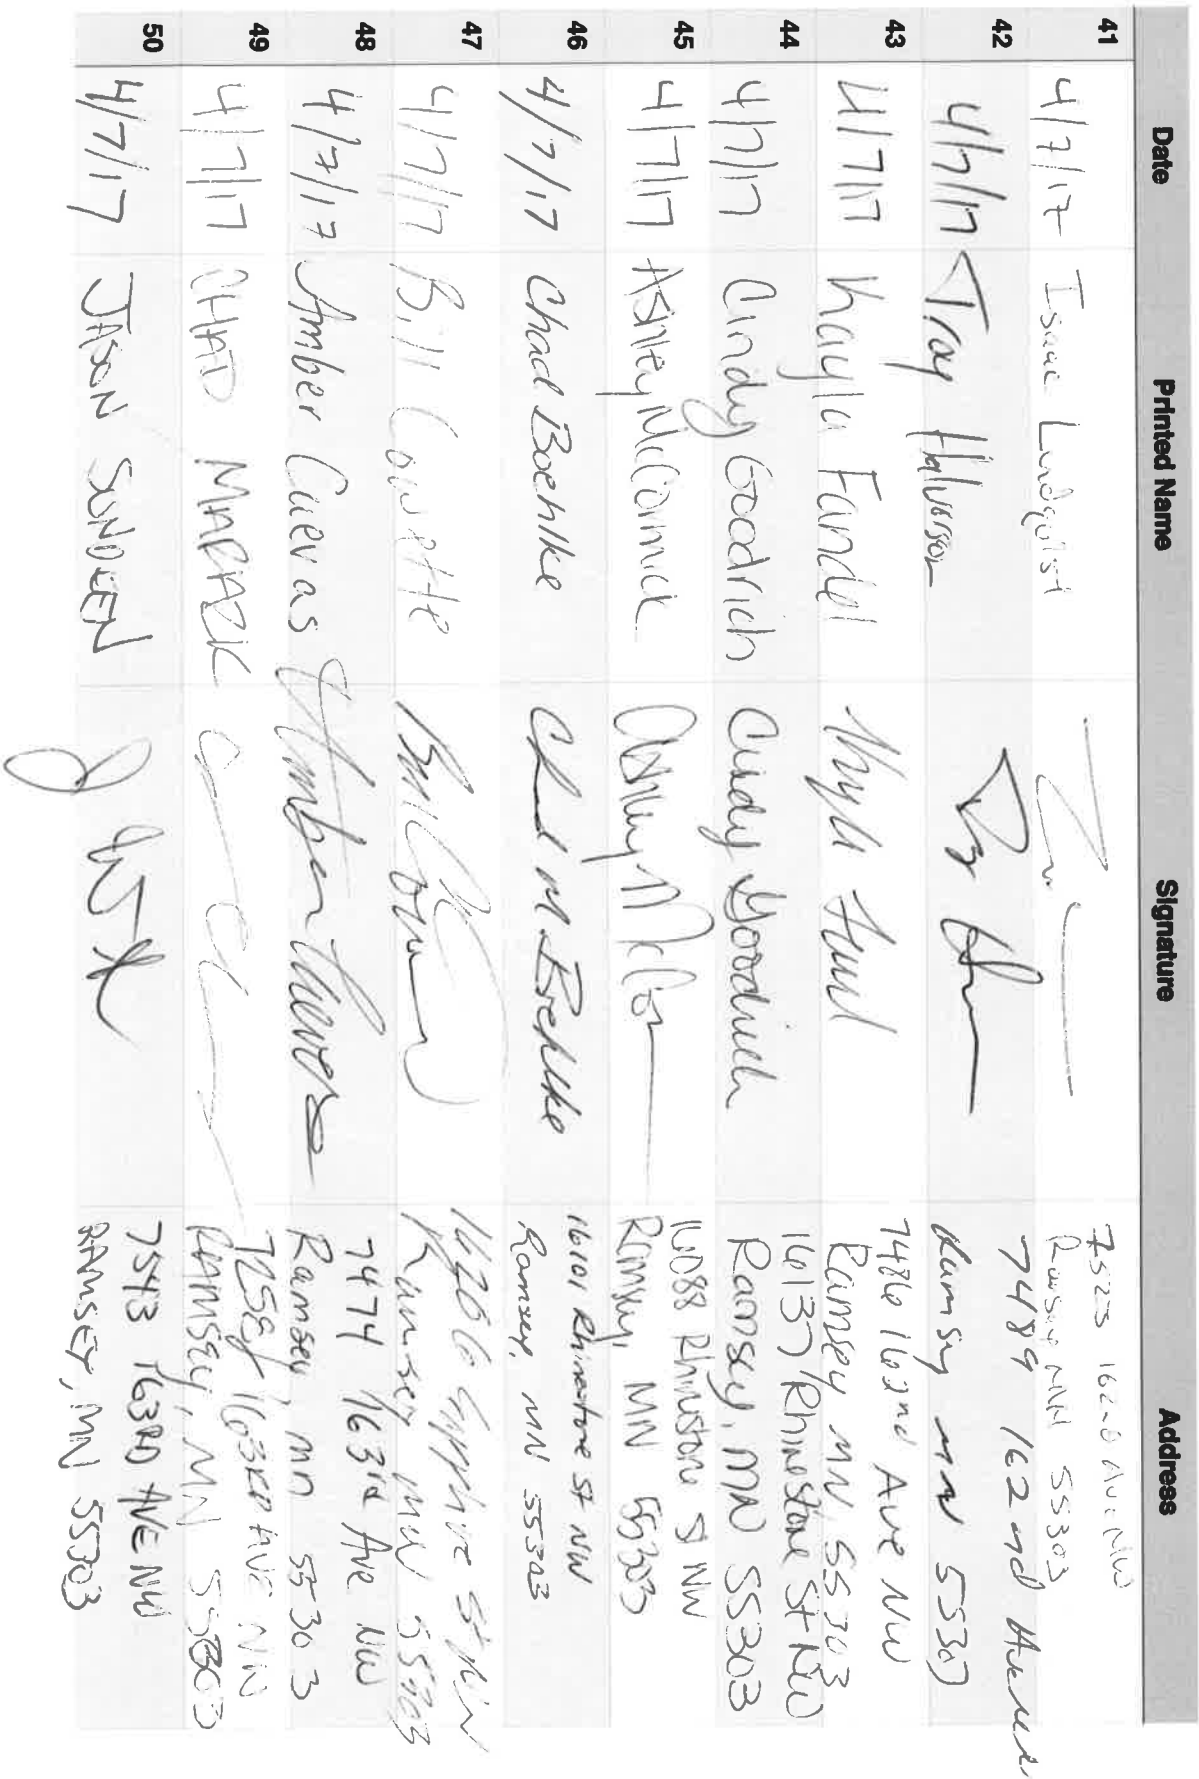 Date Printed Name Signature Address
41 4/7/17 Isaac Lundquist 7523 162nd Ave NW
Ramsey MN 55303
42 4/7/17 Troy Halvorson 7489 162nd Avenue
Ramsey MN 55303
43 4/7/17 Kayla Fandel 7486 162nd Ave NW
Ramsey MN 55303
44 4/7/17 Cindy Goodrich Cindy Goodrich 16137 Rhinestone St NW
Ramsey, MN 55303
45 4/7/17 Ashley McCormick Ashley 16088 Rhinstone St NW
Ramsey, MN 55303
46 4/7/17 Chad Boehlke Chad M Boehlke 16101 Rhinestone St NW
Ramsey, MN 55303
47 4/7/17 Bill Cowette Bill 16266 St NW
Ramsey MN 55303
48 4/7/17 Amber Cuevas Amber Cuevas 7474 163rd Ave NW
Ramsey, MN 55303
49 4/7/17 CHAD 163RD AVE NW
RAMSEY, MN 55303
50 4/7/17 JASON SUNDEEN 7543 163RD AVE NW
RAMSEY, MN 55303